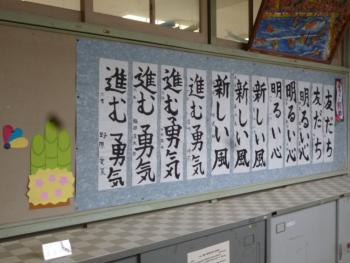 友だち
友だち
明るい心
明るい心
明るい心
新しい風
新しい風
新しい風
進む勇気
進む勇気
進む勇気
進む勇気